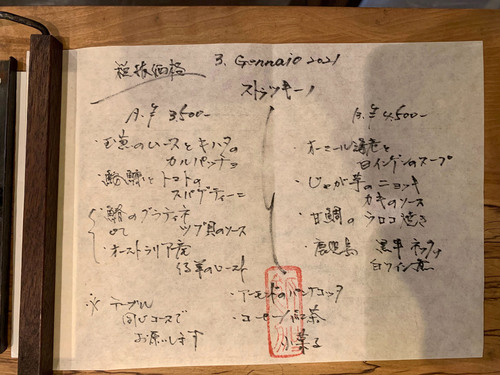 税抜価格
3. Gennaio 2021
ストラッキーノ
A. ¥ 3,500-
・玉葱のムースとキハタの
カルパッチョ
・鮟鱇とトマトの
スパゲティーニ
・鰆のグラティネ
or ツブ貝のソース
・オーストラリア産
仔羊のロースト
※ テーブル
同じコースで
お願いします
B. ¥ 4,500-
・オマール海老と
白インゲンのスープ
・じゃが芋のニョッキ
カキのソース
・甘鯛のウロコ焼き
・鹿児島 黒牛
白ワイン煮
・アーモンドのパンナコッタ
・コーヒー/紅茶
小菓子